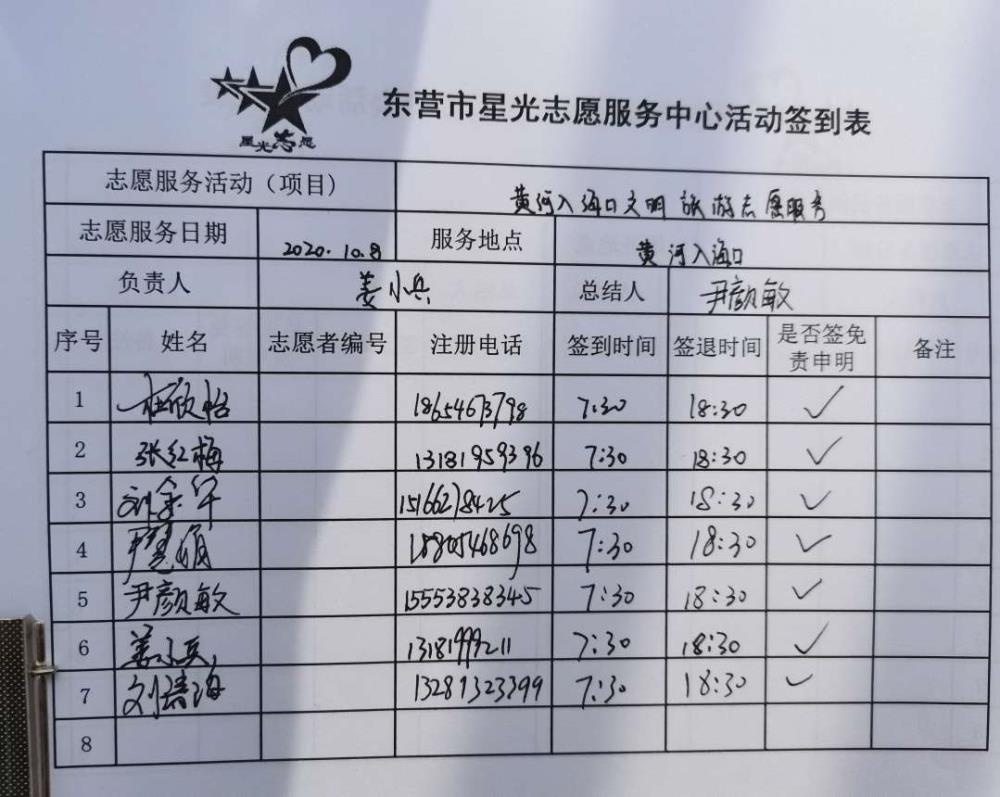 星光志愿
东营市星光志愿服务中心活动签到表
志愿服务活动（项目） 黄河入海口文明旅游志愿服务
志愿服务日期 2020.10.8 服务地点 黄河入海口
负责人 姜小兵 总结人 尹颜敏
序号 姓名 志愿者编号 注册电话 签到时间 签退时间 是否签免责申明 备注
1 杜欣怡 18654673798 7:30 18:30 ✓
2 张红梅 13181959396 7:30 18:30 ✓
3 刘金华 15166278425 7:30 18:30 ✓
4 尹慧娟 7:30 18:30 ✓
5 尹颜敏 15553838345 7:30 18:30 ✓
6 姜小兵 13181999211 7:30 18:30 ✓
7 刘 海 13281323399 7:30 18:30 ✓
8